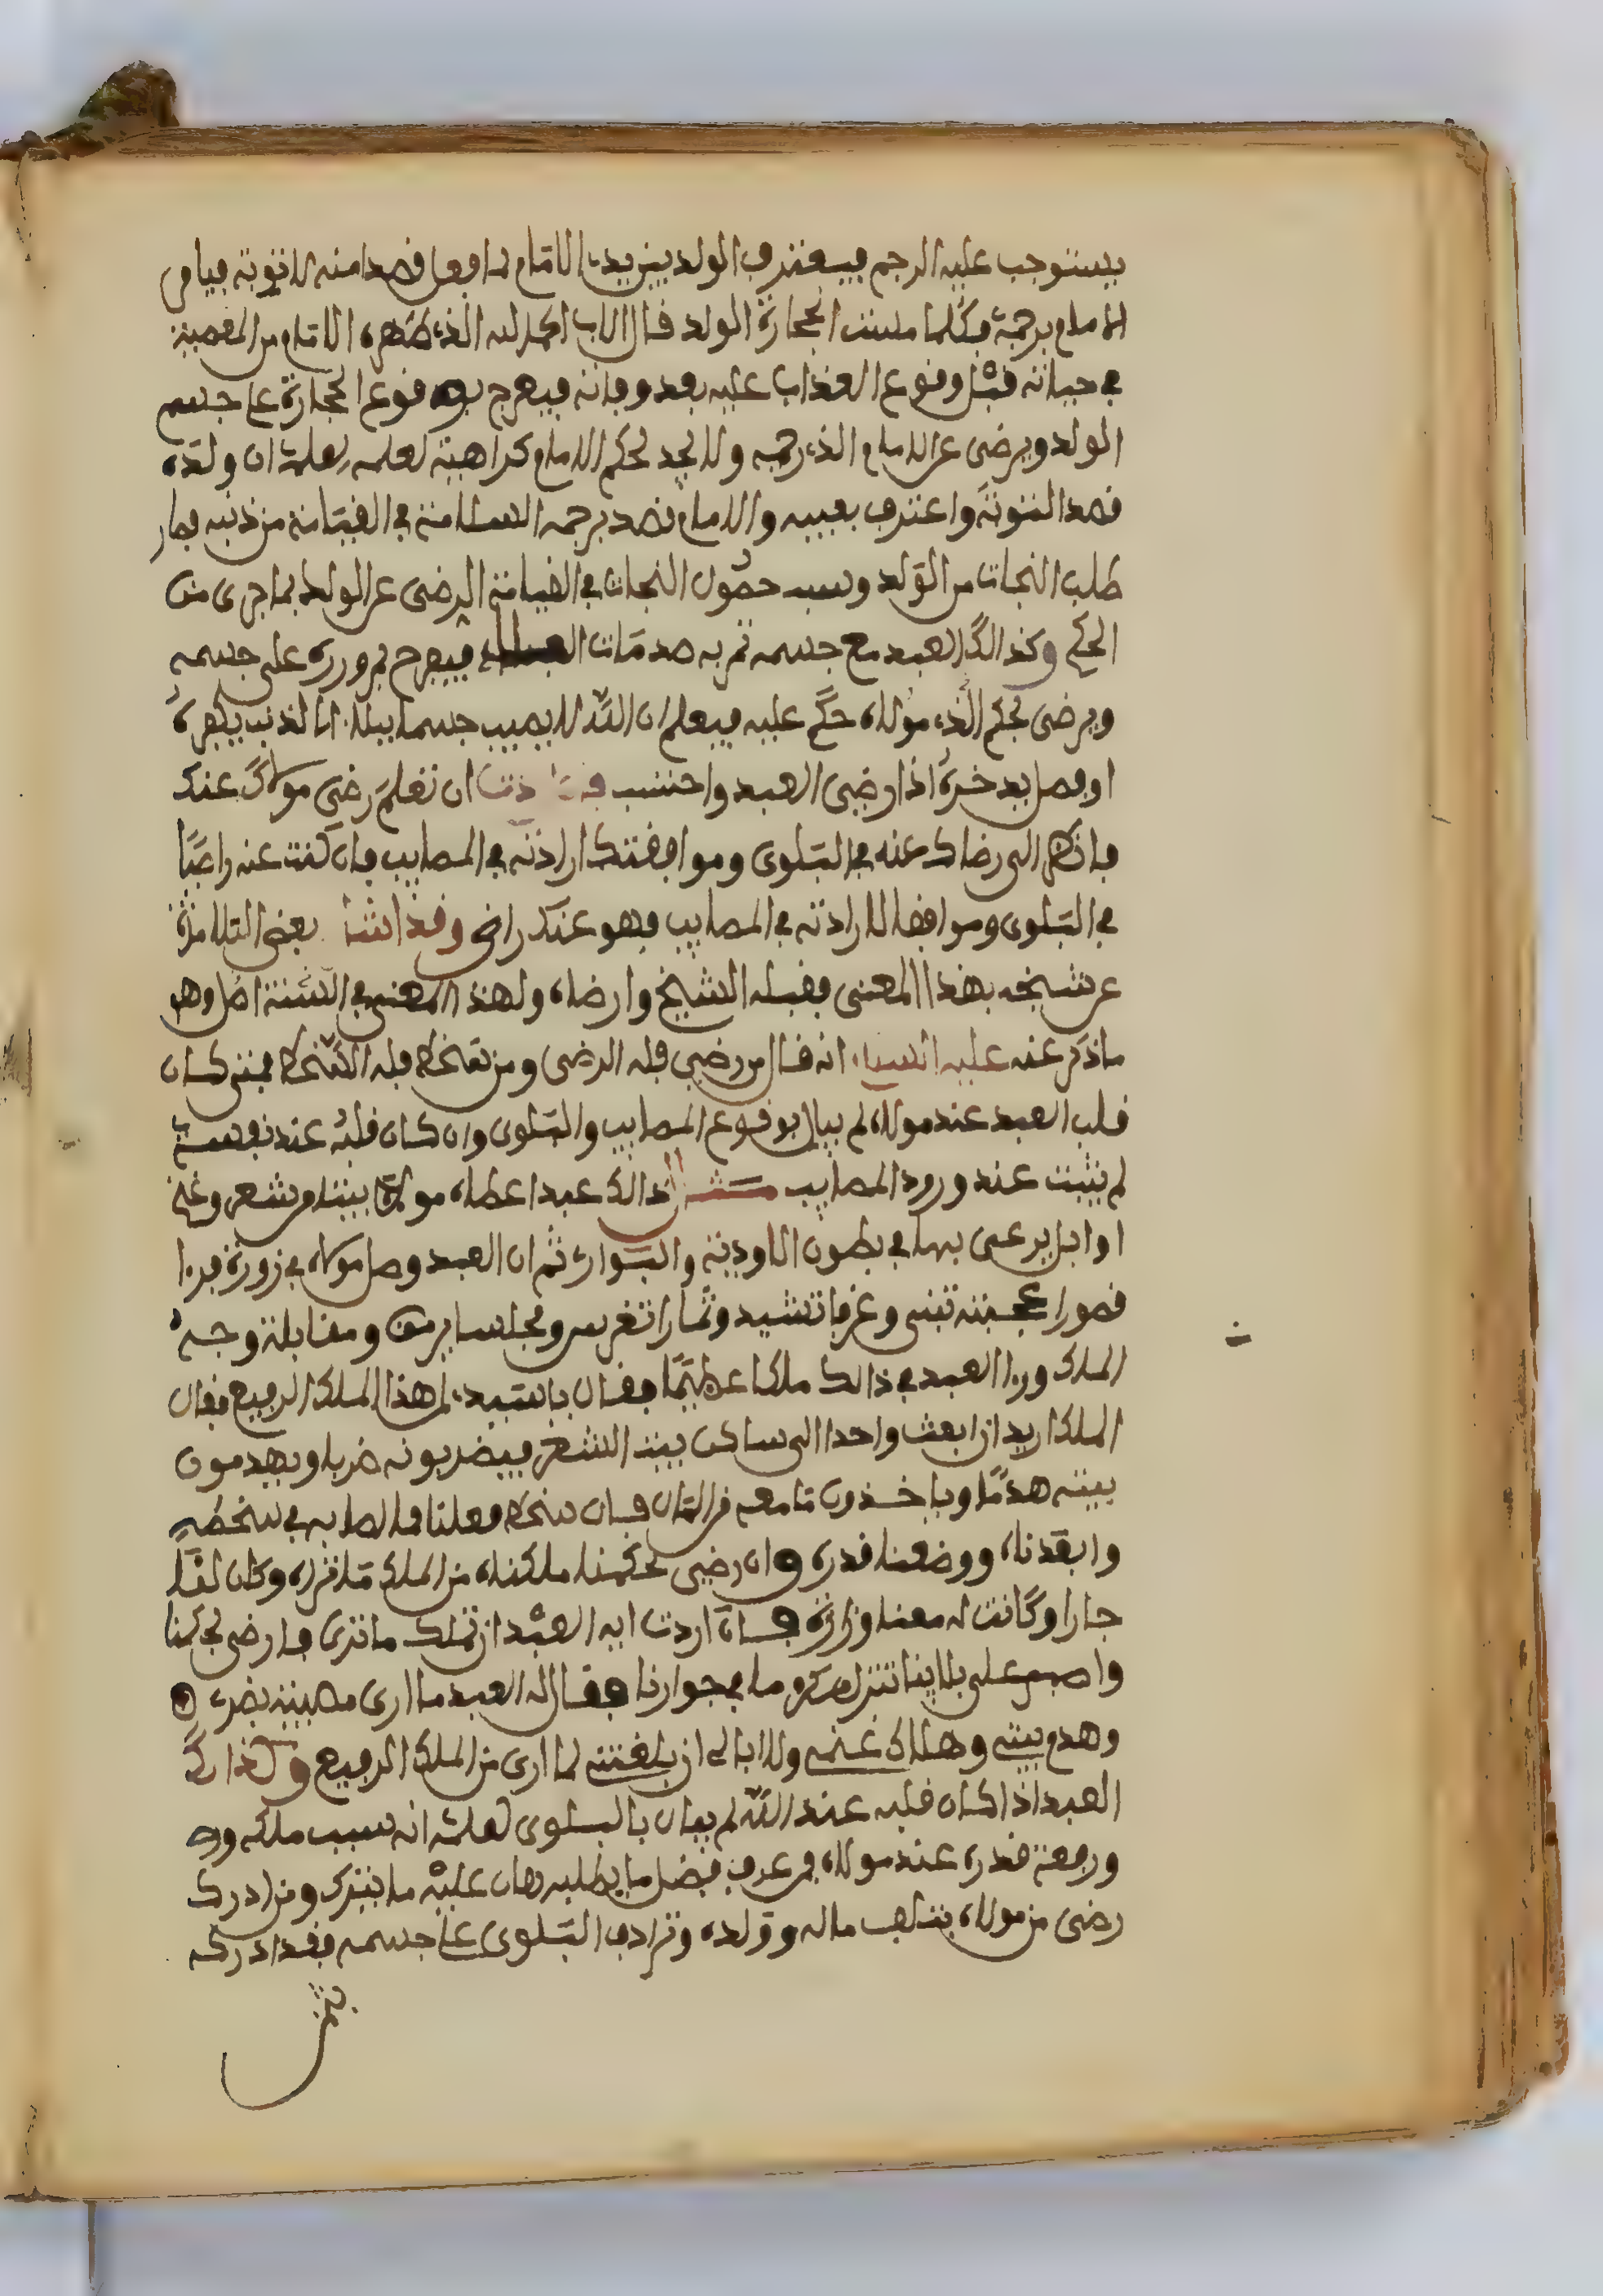 يستوجب عليه الرجم فيعترف الولد بين يدي الامام لما فعل قصدا منه للتوبة فيامر
الامام برجمه فكلما مست الحجارة الولد قال الاب الحمد لله الذي طهره الامام من المعصية
في حياته قبل وقوع العذاب عليه بعد وفاته فيفرح بوقوع الحجارة على جسم
الولد ويرضى عن الامام الذي رجمه ولا يجد لحكم الامام كراهية لعلمه ان ولده
قصد التوبة واعترف بعيبه والامام قصد برجمه السلامة في القيامة من ذنبه فصار
طلب النجات من الولد وسبب حصول النجات في القيامة الرضى عن الولد بما جرى من
الحكم وكذالك العبد مع جسمه تمر به صدمات فيفرح بمروره على جسمه
ويرضى بحكم الذي مولاه حكم عليه فيعلم ان الله لا يصيب جسما ببلاء اما لذنب يطهره
او فضل يدخره اذا رضى العبد واحتسب ان تعلم رضى مولاك عنك
فانظر الى رضاك عنه في البلوى وموافقتك ارادته في المصايب فان كنت عنه راضيا
في البلوى وموافقا لارادته في المصايب فهو عنك راض وقد انشا بعض التلامذة
عن شيخه بهذا المعنى فقبله الشيخ وارضاه ولهذا المعنى في السنة اصل وهو
ماذكر عنه عليه السلام انه قال من رضي فله الرضى ومن تسخط فله السخط فمتى كان
قلب العبد عند مولاه لم يبال بوقوع المصايب والبلوى وان كان قلبه عند نفسه
لم يثبت عند ورود المصايب مثال ذالك عبد اعطاه مولاه بيتا من شعر وغنم
او ابل يرعى بها في بطون الاودية والبوادي ثم ان العبد وصل مولاه في زورة فرءا
قصورا عجيبة تبنى وغرفا تشيد وثمارا تغرس ومجلسا يرمق ومقابلة وجه
الملك ورءا العبد في ذالك ملكا عظيما فقال ياسيدي لمن هذا الملك الرفيع فقال
الملك اريد ان ابعث واحدا الى ساكن بيت الشعر فيضربونه ضربا ويهدمون
بيته هدما وياخذون ما معه من المال فان سخط فعلنا ما له به في سخطه
وابعدناه ووضعنا قدره وان رضي بحكمنا ملكناه من الملك ما تراه وكان لنا
جارا وكانت له معنا وزارة فان اردت ايه العبد ان تملك ما ترى فارضى بحكمنا
واصبر على بلاينا تنزل مكرما بجوارنا فقال له العبد ما ارى مصيبة بضربي
وهدم بيتي وهلاك غنمي ولا ابالي ان بلغتني لما ارى من الملك الرفيع وكذالك
العبد اذا كان قلبه عند الله لم يبال بالبلوى لعلمه انه سبب ملكه
ورفعة قدره عند مولاه فمن عرف فضل ما يطلبه هان عليه ما يترك ومن ادرك
رضى من مولاه بتلف ماله وولده وترادف البلوى على جسمه فقد ادرك